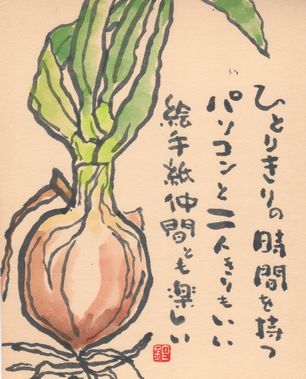 ひとりきりの時間を持つ
パソコンと二人きりもいい
絵手紙仲間とも楽しい